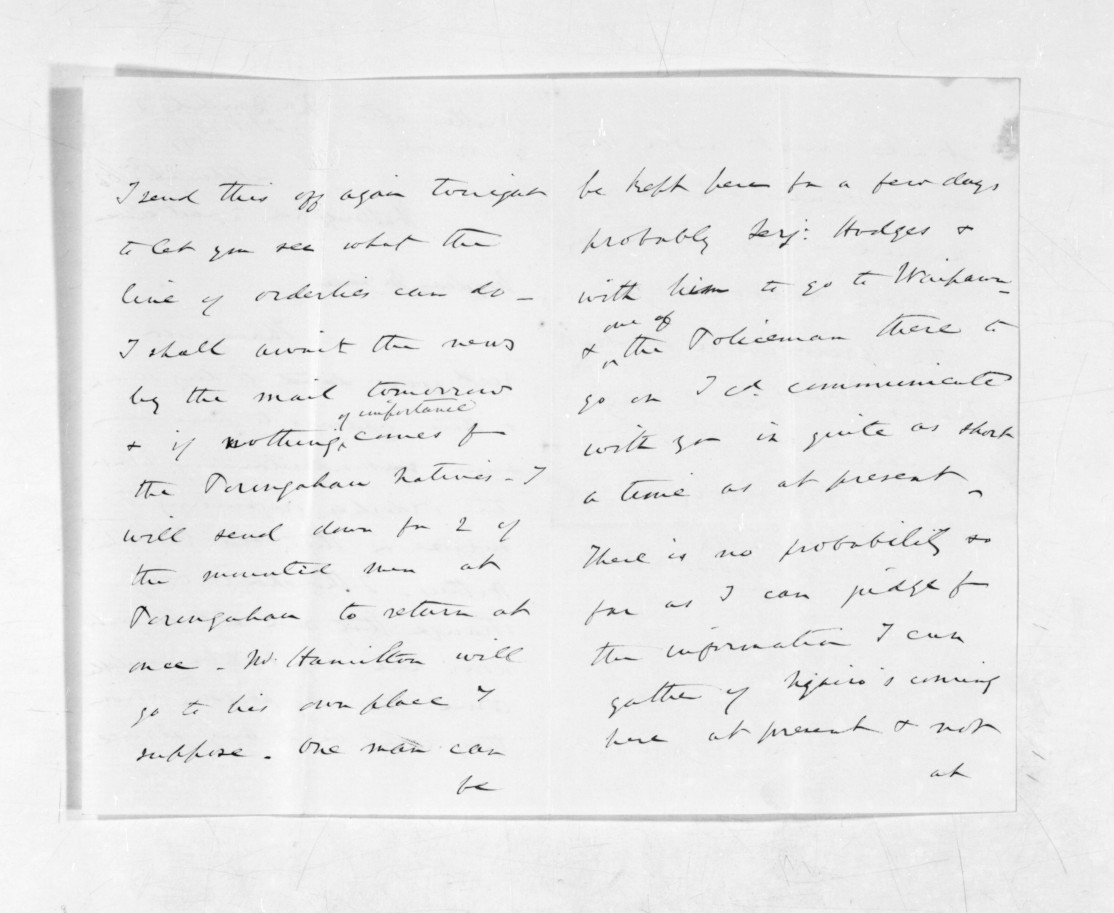 I send this off again tonight
to let you see what the
line of orderlies can do -
I shall await the news
by the mail tomorrow
of importance
& if nothing comes f
the Porangahau Natives - I
will send down for 2 of
the mounted men at
Porangahau to return at
once - Mr Hamilton will
go to his own place I
suppose. One man can
be
be kept here for a few days
probably Serj: Hodges &
with him to go to Waipawa -
one of
& the Policeman there to
go on I cd. communicate
with you in quite as short
a time as at present -
There is no probability so
far as I can judge f
the information I can
gather of Ngairo's coming
here at present & not
at